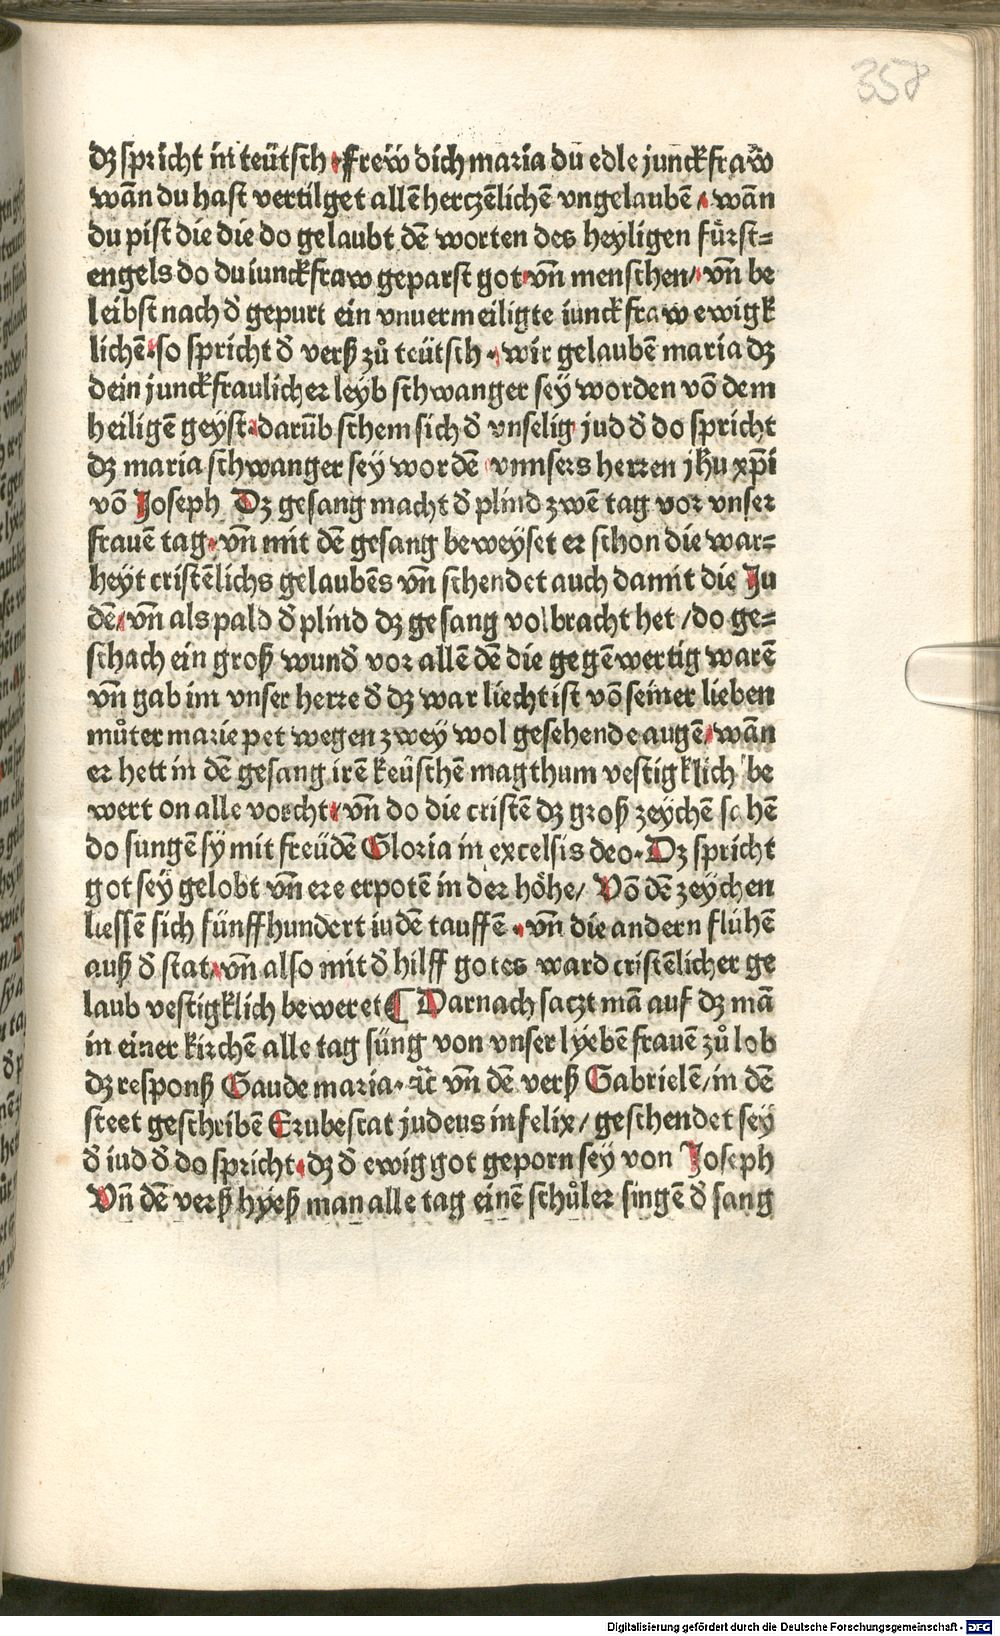 358
dz spricht in teütsch · Frew̎ dich maria du edle junckfraw̎
wañ du hast vertilget allē hertzēlichē vngelaubē · wañ
du pist die die do gelaubt dē worten des heyligen fürst=
engels do du iunckfraw geparst got · vn̄ menschen / vn̄ be
leibst nach d̕ gepurt ein vnuermeiligte iunckfraw ewigk
lichē · so spricht d̕ verß zů teütsch · wir gelaubē maria dz
dein junckfraulicher leyb schwanger seÿ worden vō dem
heiligē geyst · darūb schem sich d̕ vnselig jud d̕ do spricht
dz maria schwanger sey wordē vnnsers herren jhu xp̄i
vō Joseph Dz gesang macht d̕ plind zwē tag vor vnser
frauē tag · vn̄ mit dē gesang beweÿset er schon die war=
heÿt cristēlichs gelaubēs vn̄ schendet auch damit die Ju
dē / vn̄ als pald d̕ plind dz gesang volbracht het / do ge=
schach ein groß wund̕ vor allē dē die gegēwertig warē
vn̄ gab im vnser herre d̕ dz war liecht ist vō seiner lieben
můter marie pet wegen zwey wol gesehende augē / wañ
er hett in dē gesang irē keüschē magthum vestigklich be
wert on alle vorcht · vn̄ do die cristē dz groß zeÿchē sahē
do sungē sÿ mit freüdē Gloria in excelsis deo · Dz spricht
got seÿ gelobt vn̄ ere erpotē in der höhe / Vō dē zeÿchen
liessē sich fünffhundert iudē tauffē · vn̄ die andern flühē
auß d̕ stat · vn̄ also mit d̕ hilff gotes ward cristēlicher ge
laub vestigklich beweret ¶ Darnach saczt mā auf dz mā
in einer kirchē alle tag süng von vnser lÿebē frauē zů lob
dz responß Gaude maria · ꝛc̄ vn̄ dē verß Gabrielē / in dē
steet geschribē Erubescat judeus infelix / geschendet seÿ
d̕ iud d̕ do spricht · dz d̕ ewig got geporn sey von Joseph
Vn̄ dē verß hÿeß man alle tag einē schůler singē d̕ sang
Digitalisierung gefördert durch die Deutsche Forschungsgemeinschaft - DFG